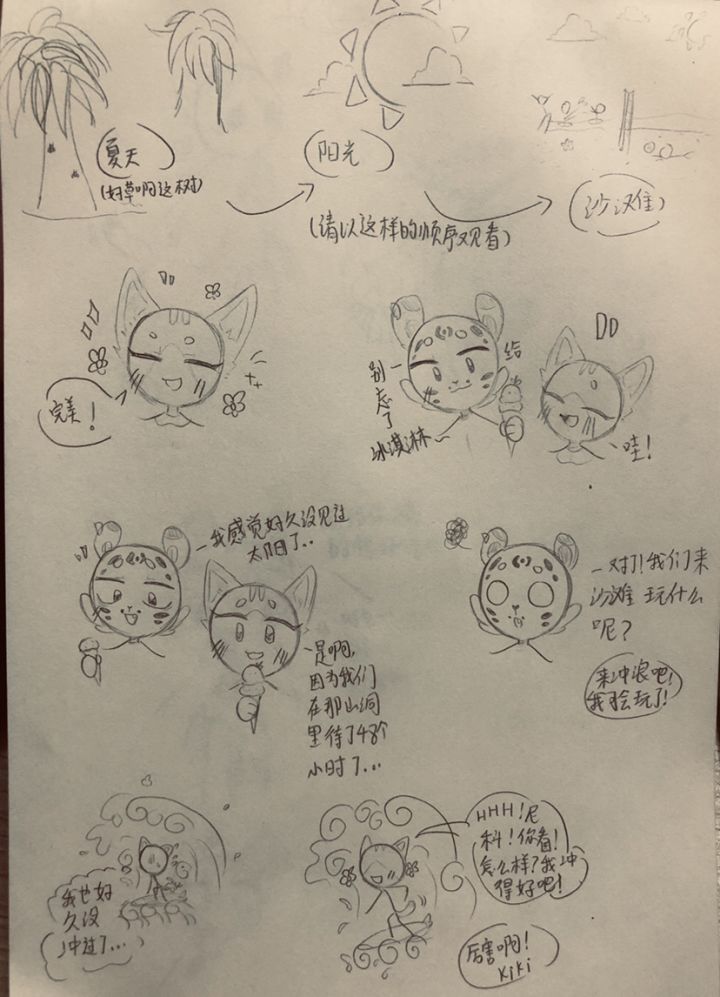 夏天
(好草啊这树)
阳光
(请以这样的顺序观看)
沙滩
完美！
别
忘
了
冰淇淋~
给
哇！
我感觉好久没见过
太阳了..
是啊,
因为我们
在那山洞
里待了48个
小时了...
对了!我们来
沙滩玩什么
呢？
来冲浪吧!
我可会玩了!
我也好
久没
冲过了...
HHH!尼
科!你看!
怎么样?我冲
得好吧!
厉害啊!
KiKi